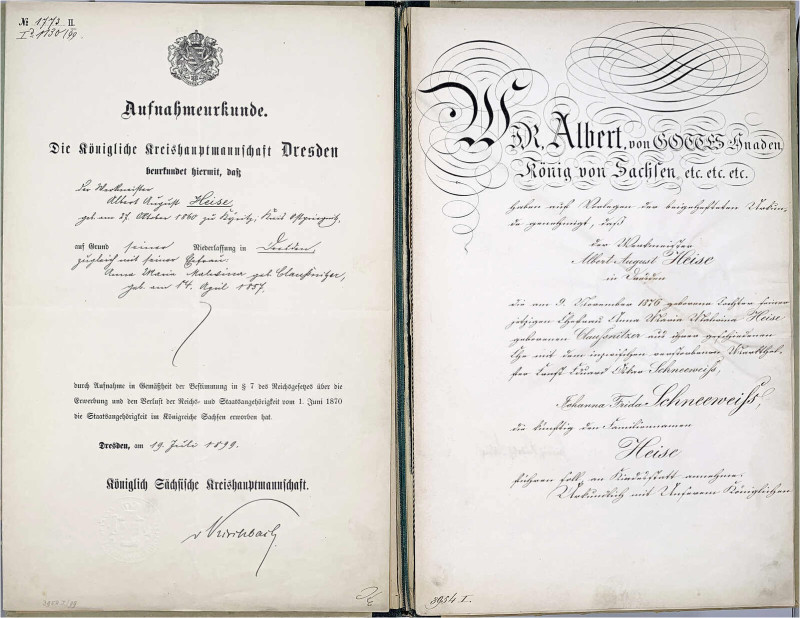 № 1773 II.
I^a. 1130/99
Aufnahmeurkunde.
Die Königliche Kreishauptmannschaft Dresden
beurkundet hiermit, daß
der Werkmeister
Albert August Heise
geb. am 27. Oktober 1860 zu Kyritz, Kreis Ostprignitz,
auf Grund seiner Niederlassung in Dresden,
zugleich mit seiner Ehefrau
Anna Maria Malwina geb. Claußnitzer,
geb. am 14. April 1857.
durch Aufnahme in Gemäßheit der Bestimmung in § 7 des Reichsgesetzes über die
Erwerbung und den Verlust der Reichs- und Staatsangehörigkeit vom 1. Juni 1870
die Staatsangehörigkeit im Königreiche Sachsen erworben hat.
Dresden, am 19. Juli 1899.
Königlich Sächsische Kreishauptmannschaft.
WIR, Albert, von GOTTES Gnaden,
König von Sachsen, etc. etc. etc.
haben auf Vorlegen der beigehefteten Urkun-
de genehmigt, daß
der Werkmeister
Albert August Heise
in Dresden
die am 9. November 1876 geborene Tochter seiner
jetzigen Ehefrau Anna Maria Malwina Heise
geborenen Claussnitzer aus ihrer geschiedenen
Ehe mit dem inzwischen verstorbenen Markthel-
fer Ernst Eduard Oskar Schneeweiss,
Johanna Frida Schneeweiss,
die künftig den Familiennamen
Heise
führen soll, an Kindesstatt annehme.
Urkundlich mit Unserem Königlichen
3954 I.